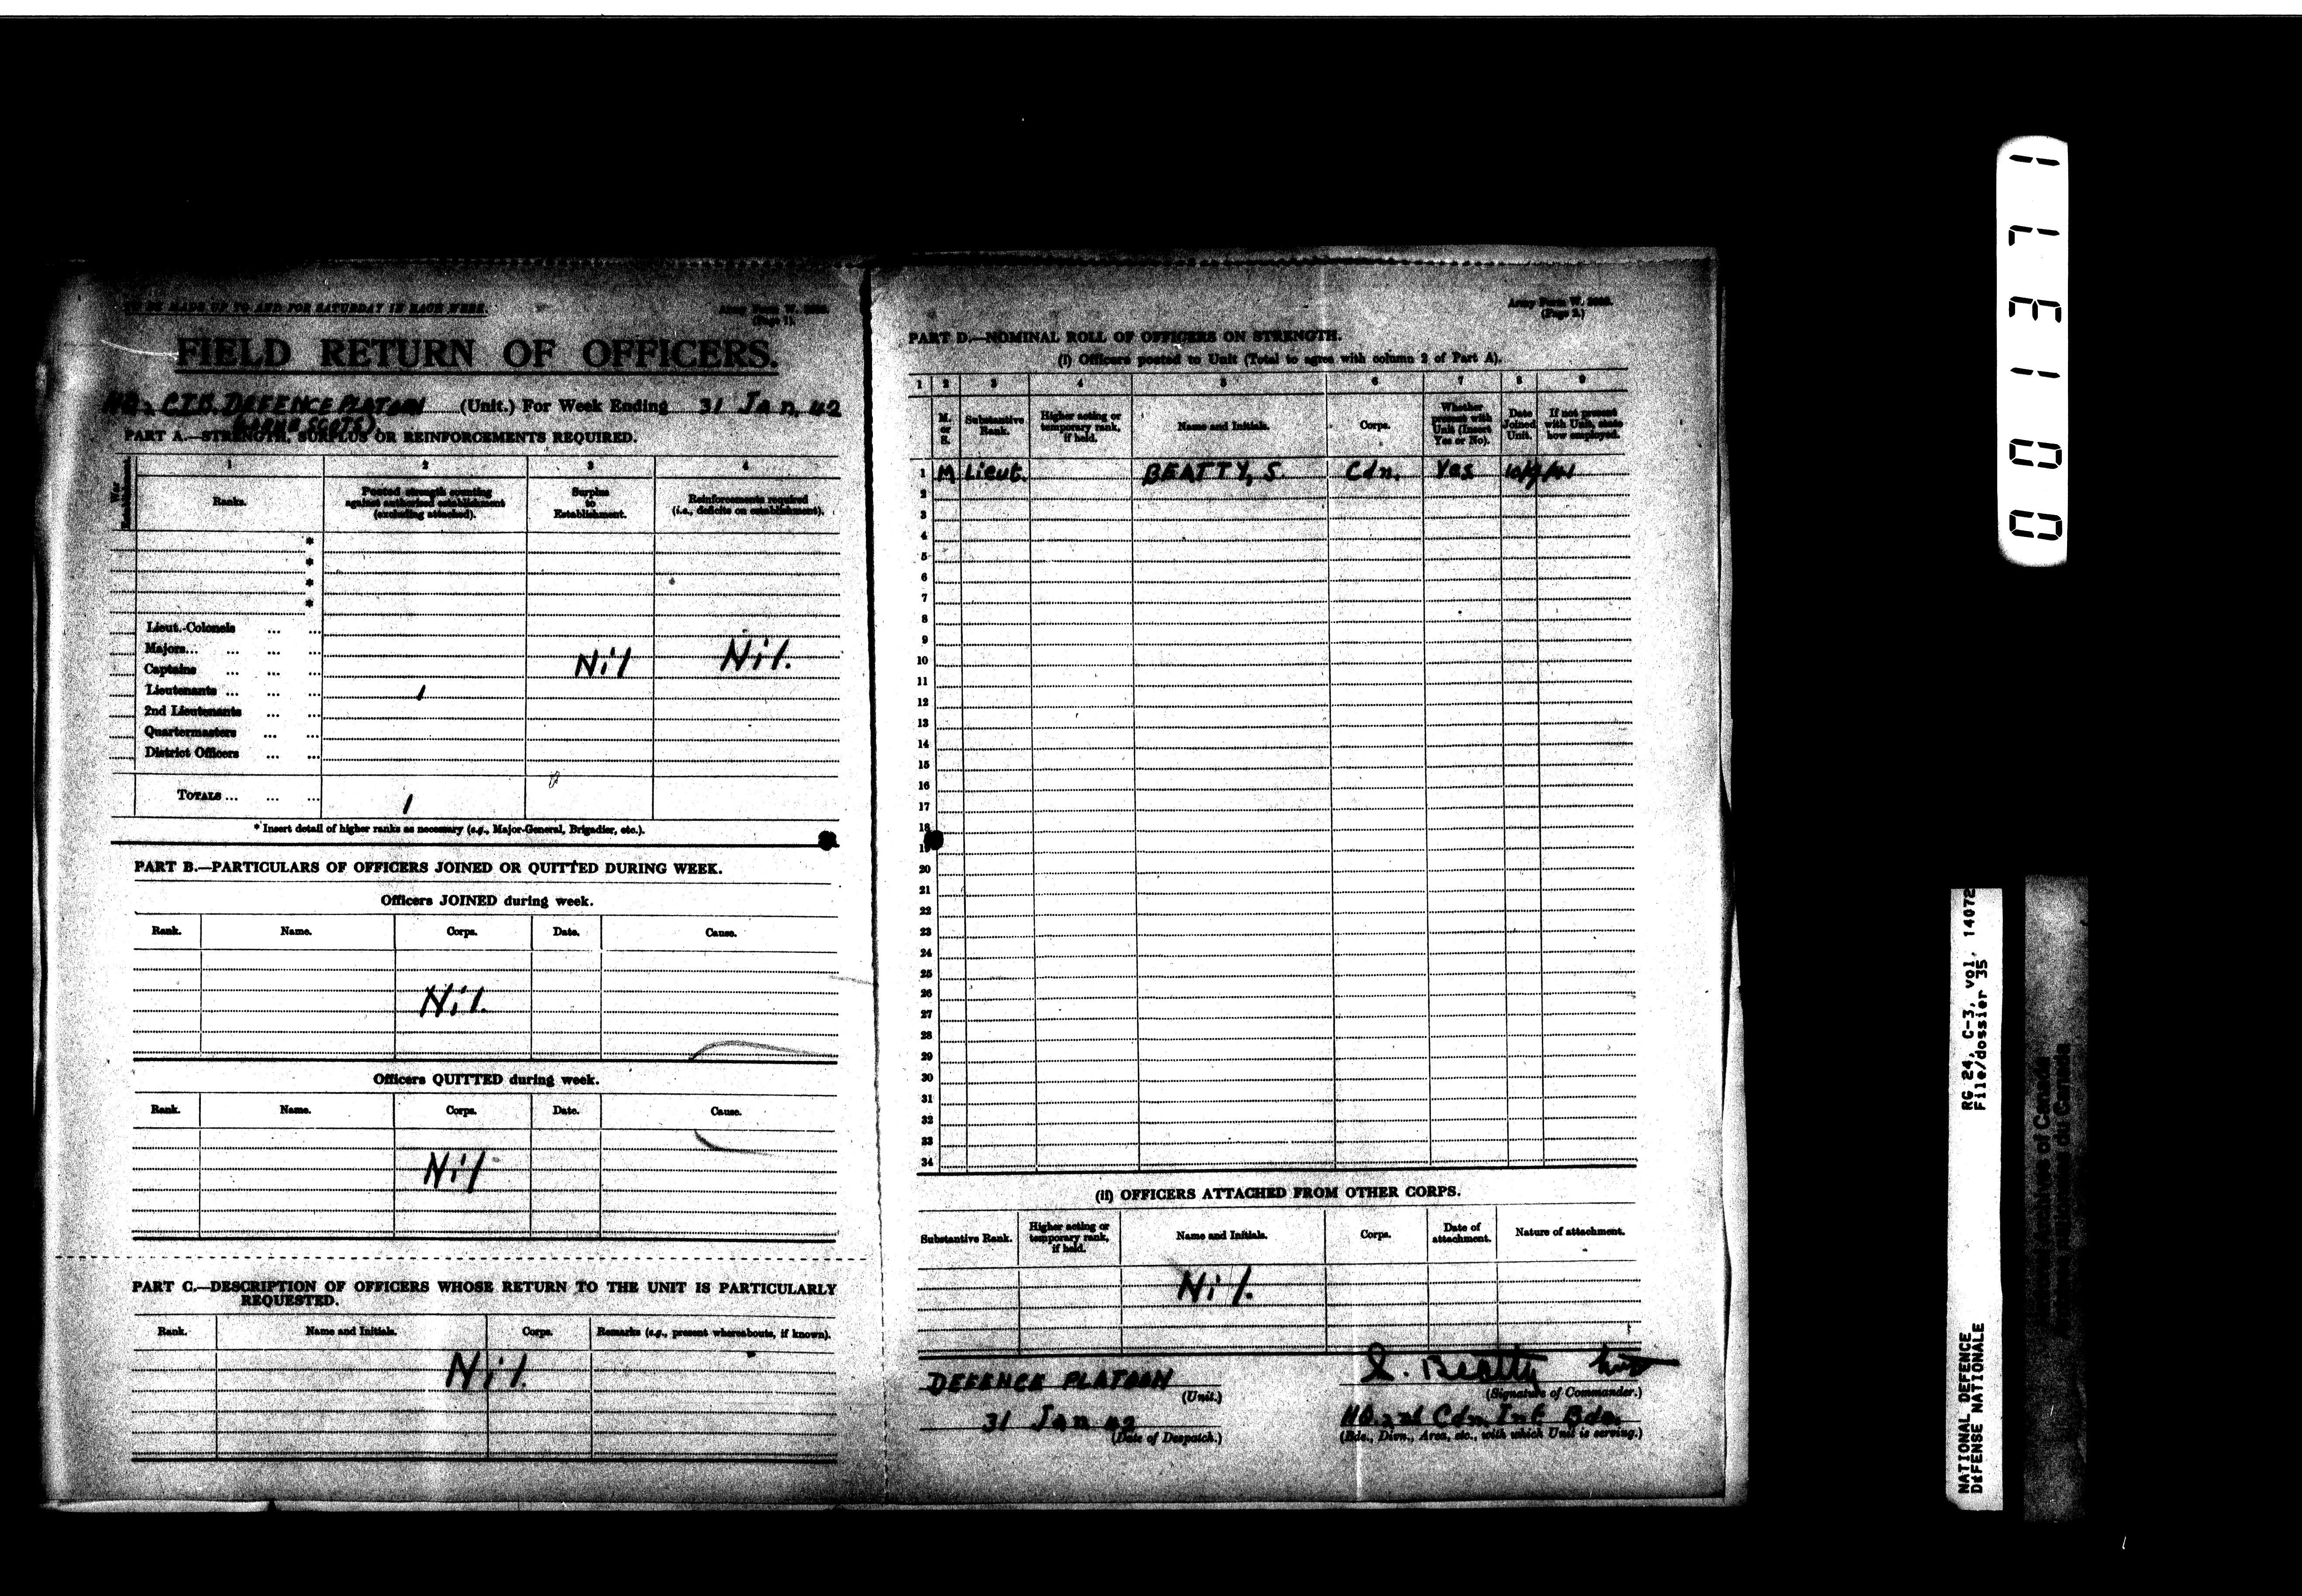 TO BE MADE UP TO AND FOR SATURDAY IN EACH WEEK.
Army Form W.
(Page 1).
FIELD RETURN OF OFFICERS.
DEFENCE PLATOON (Unit.) For Week Ending 31 Jan 42
SCOTS)
PART A.—STRENGTH, SURPLUS OR REINFORCEMENTS REQUIRED.
War Establishment.
1 2 3 4
Ranks.
Posted strength counting against authorised establishment (excluding attached).
Surplus to Establishment.
Reinforcements required (i.e., deficits on establishment).
*
*
*
*
Lieut.-Colonels ... ...
Majors... ... ... ...
Captains ... ... ... Nil Nil.
Lieutenants ... ... ... 1
2nd Lieutenants ... ...
Quartermasters ... ...
District Officers ... ...
TOTALS ... ... ... 1
* Insert detail of higher ranks as necessary (e.g., Major-General, Brigadier, etc.).
PART B.—PARTICULARS OF OFFICERS JOINED OR QUITTED DURING WEEK.
Officers JOINED during week.
Rank. Name. Corps. Date. Cause.
Nil.
Officers QUITTED during week.
Rank. Name. Corps. Date. Cause.
Nil
PART C.—DESCRIPTION OF OFFICERS WHOSE RETURN TO THE UNIT IS PARTICULARLY
REQUESTED.
Rank. Name and Initials. Corps. Remarks (e.g., present whereabouts, if known).
Nil.
Army Form W.
(Page 2.)
PART D.—NOMINAL ROLL OF OFFICERS ON STRENGTH.
(i) Officers posted to Unit (Total to agree with column 2 of Part A).
1 2 3 4 5 6 7 8 9
M. or S.
Substantive Rank.
Higher acting or temporary rank, if held.
Name and Initials.
Corps.
Whether present with Unit (Insert Yes or No).
Date Joined Unit.
If not present with Unit, state how employed.
1 M Lieut. BEATTY, S. Cdn. Yes
2
3
4
5
6
7
8
9
10
11
12
13
14
15
16
17
18
19
20
21
22
23
24
25
26
27
28
29
30
31
32
33
34
(ii) OFFICERS ATTACHED FROM OTHER CORPS.
Substantive Rank.
Higher acting or temporary rank, if held.
Name and Initials.
Corps.
Date of attachment.
Nature of attachment.
Nil.
DEFENCE PLATOON
(Unit.)
31 Jan 42
(Date of Despatch.)
S. Beatty Lieut
(Signature of Commander.)
HQ. 2nd Cdn. Inf. Bde.
(Bde., Divn., Area, etc., with which Unit is serving.)
001371
RG 24, C-3, vol. 14072
File/dossier 35
NATIONAL DEFENCE
DÉFENSE NATIONALE